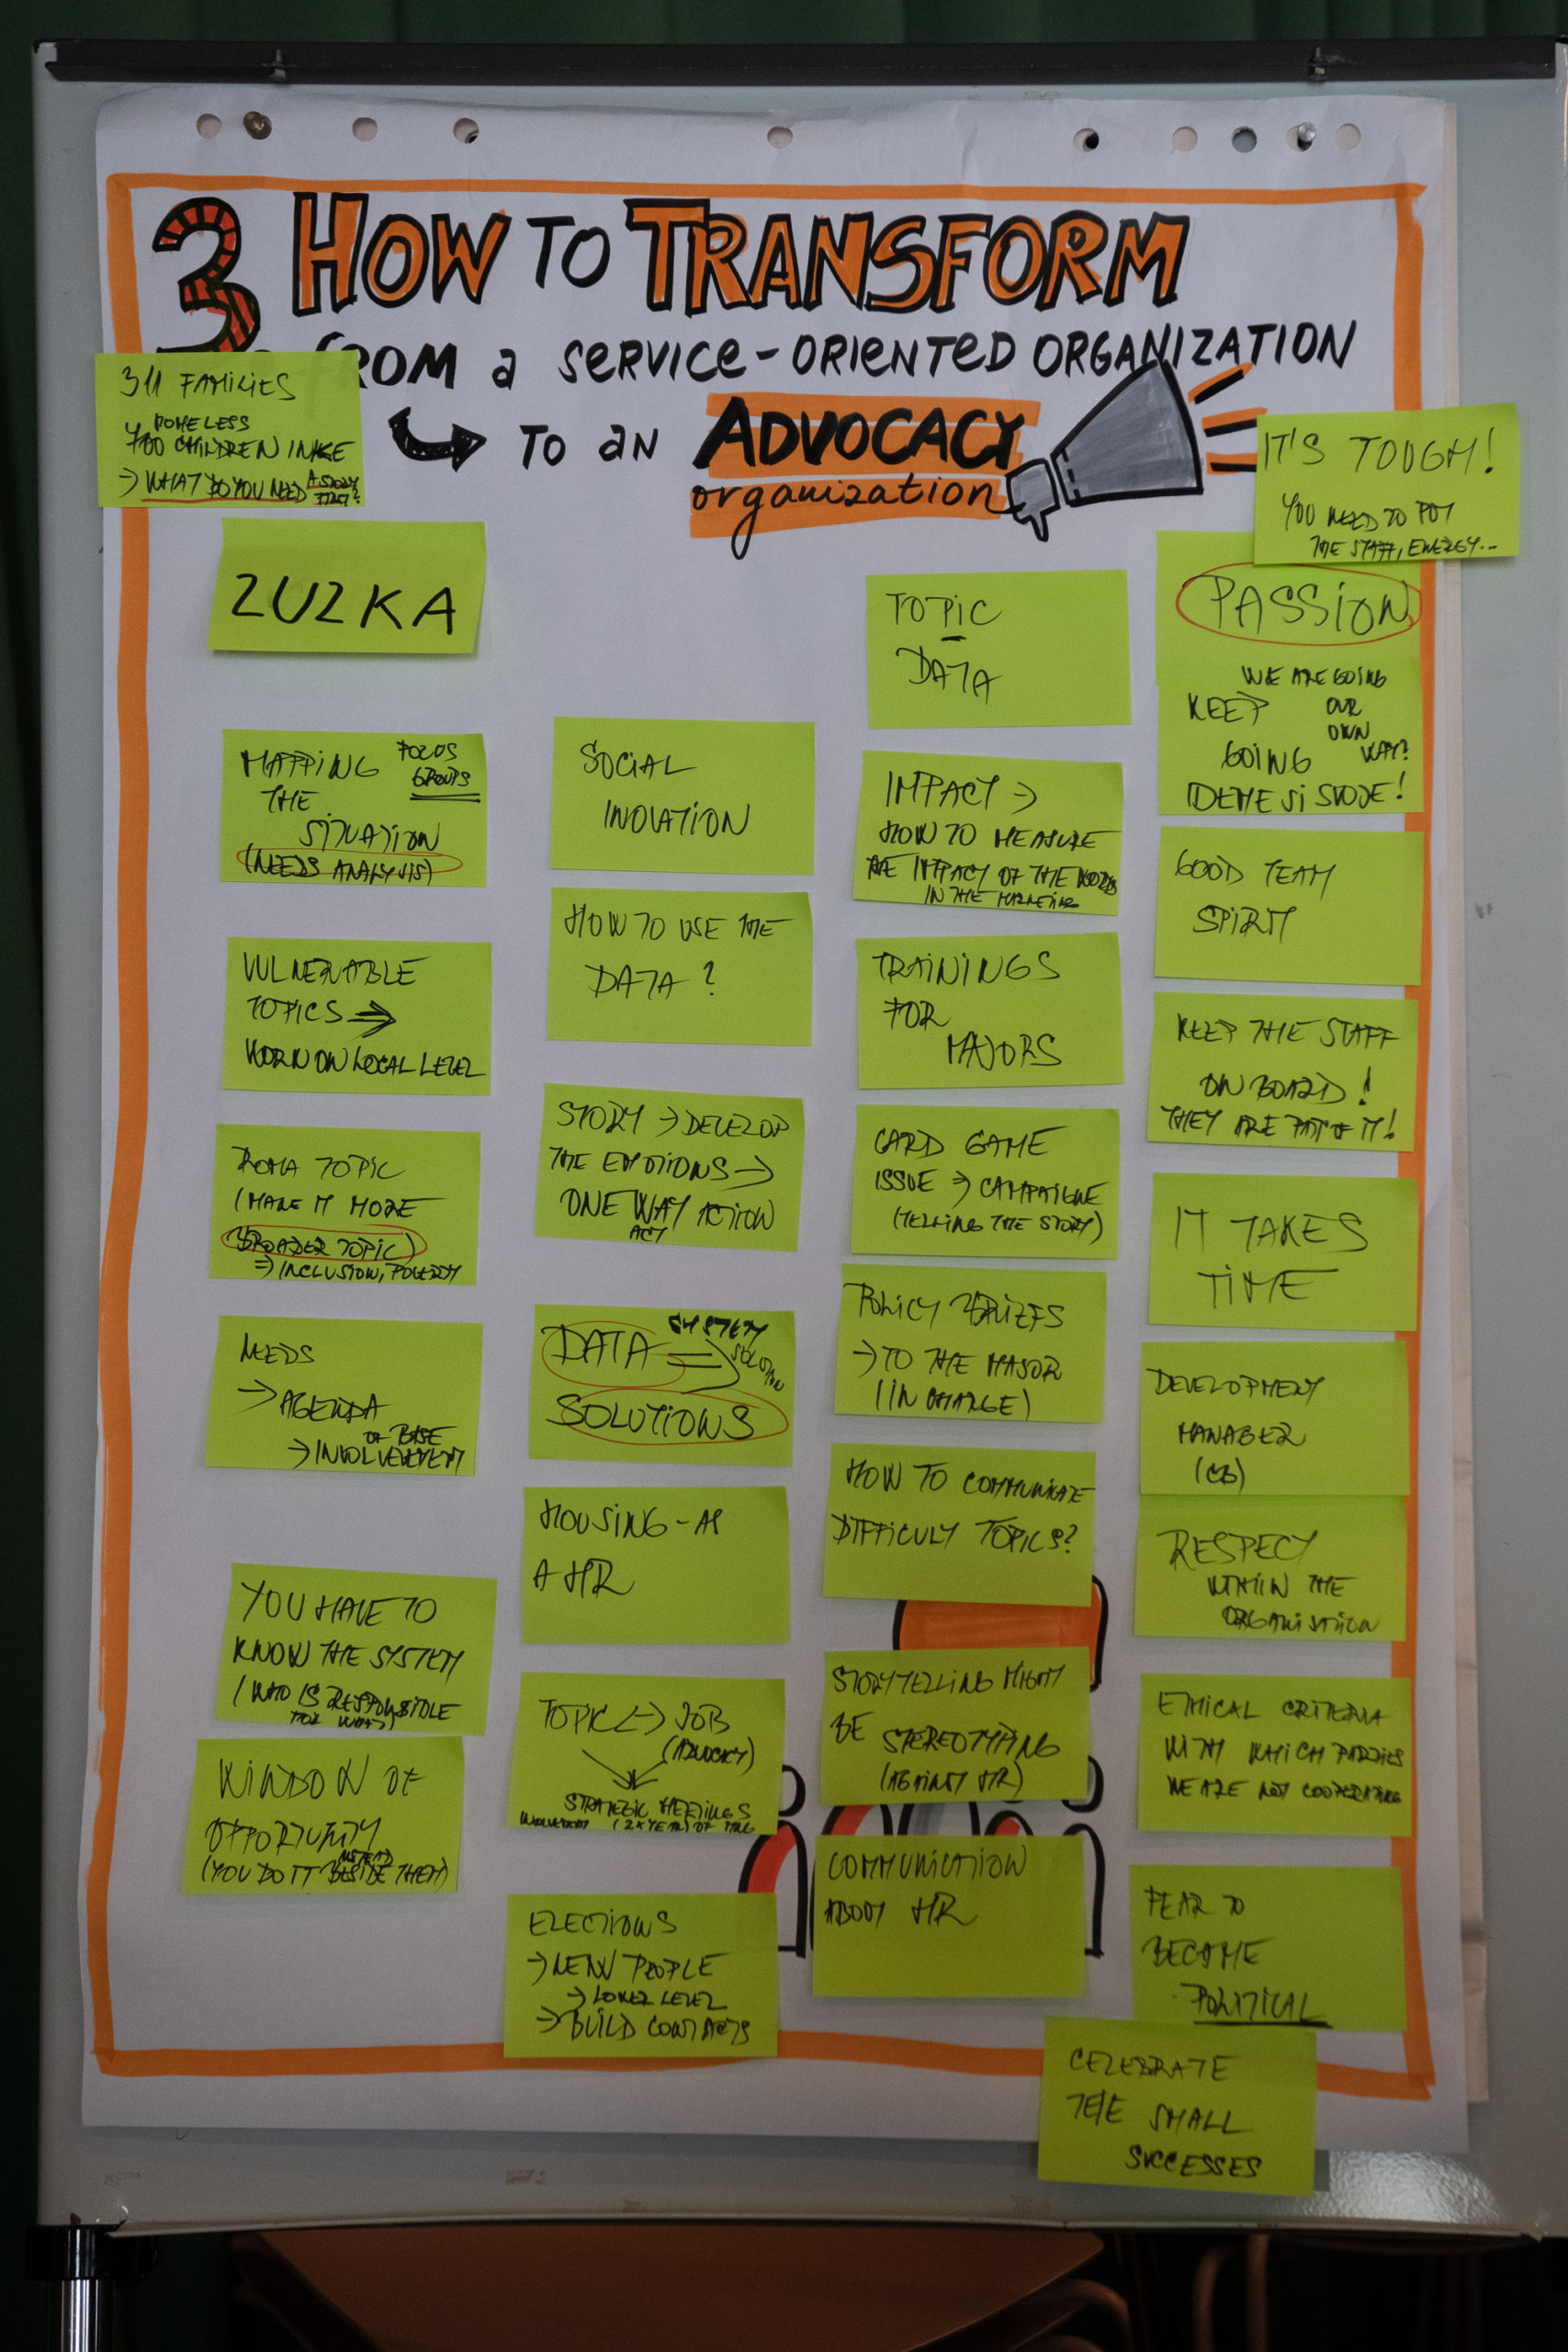 3 HOW TO TRANSFORM
FROM a SERVICE-ORIENTED ORGANIZATION
TO an ADVOCACY
organization
311 FAMILIES
HOMELESS
700 CHILDREN IN
→ WHAT DO YOU NEED A STORY
FIRST?
IT'S TOUGH!
YOU NEED TO PUT
THE STAFF, ENERGY...
ZUZKA
MAPPING FOCUS
THE GROUPS
SITUATION
(NEEDS ANALYSIS)
VULNERABLE
TOPICS ⇒
WORK ON LOCAL LEVEL
ROMA TOPIC
(MAKE IT MORE
BROADER TOPIC)
⇒ INCLUSION, POVERTY
NEEDS
→ AGENDA
OF BASE
→ INVOLVEMENT
YOU HAVE TO
KNOW THE SYSTEM
(WHO IS RESPONSIBLE
FOR WHAT)
WINDOW OF
OPPORTUNITY
INSTEAD
(YOU DO IT BESIDE THEM)
SOCIAL
INOVATION
HOW TO USE THE
DATA?
STORY → DEVELOP
THE EMOTIONS →
ONE WAY ACTION
ACT
DATA ⇒ SYSTEM
SOLUTION
SOLUTIONS
HOUSING - AS
A HR
TOPIC <-> JOB
(ADVOCACY)
STRATEGIC MEETINGS
(2x YEAR) OF
ELECTIONS
→ NEW PEOPLE
→ LOWER LEVEL
→ BUILD CONTACTS
TOPIC
DATA
IMPACT →
HOW TO MEASURE
THE IMPACT OF THE WORDS
IN THE MARKETING
TRAININGS
FOR
MAJORS
CARD GAME
ISSUE → CAMPAIGNE
(TELLING THE STORY)
POLICY BRIEFS
→ TO THE MAJOR
(IN CHARGE)
HOW TO COMMUNICATE
DIFFICULT TOPICS?
STORYTELLING MIGHT
BE STEREOTYPING
(AGAINST HR)
COMMUNICATION
ABOUT HR
PASSION
WE ARE GOING
KEEP OUR
OWN
GOING WAY?
IDEME SI SVOJE!
GOOD TEAM
SPIRIT
KEEP THE STAFF
ON BOARD!
THEY ARE PART OF IT!
IT TAKES
TIME
DEVELOPMENT
MANAGER
(CB)
RESPECT
WITHIN THE
ORGANISATION
ETHICAL CRITERIA
WITH WHICH PARTIES
WE ARE NOT COOPERATING
FEAR TO
BECOME
POLITICAL
CELEBRATE
THE SMALL
SUCCESSES